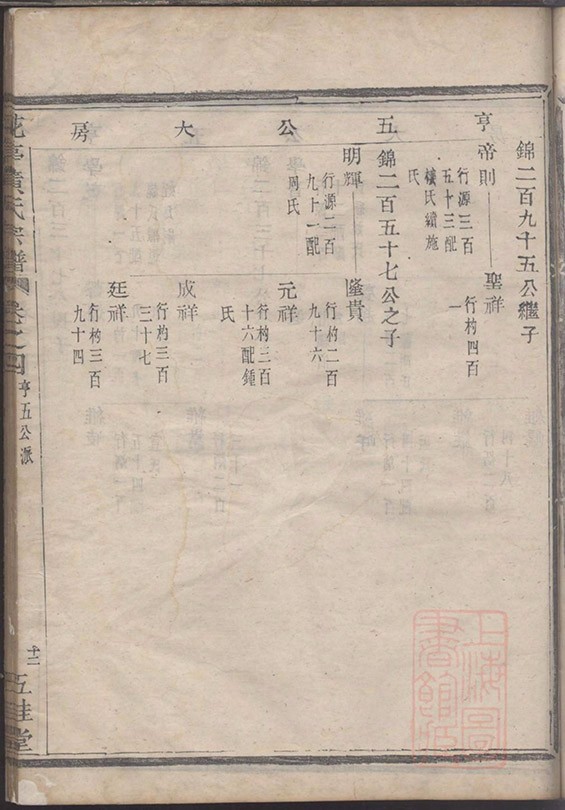 亨五公大房
錦二百九十五公繼子
帝則
行源三百
五十三配
樓氏續施
氏
聖祥
行杓四百
一
錦二百五十七公之子
明輝
行源二百
九十一配
周氏
隆貴
行杓二百
九十六
元祥
行杓三百
十六配鍾
氏
成祥
行杓三百
三十七
廷祥
行杓三百
九十四
黃氏宗譜
卷之四
亨五公派
十二
五桂堂
上海圖
書館藏